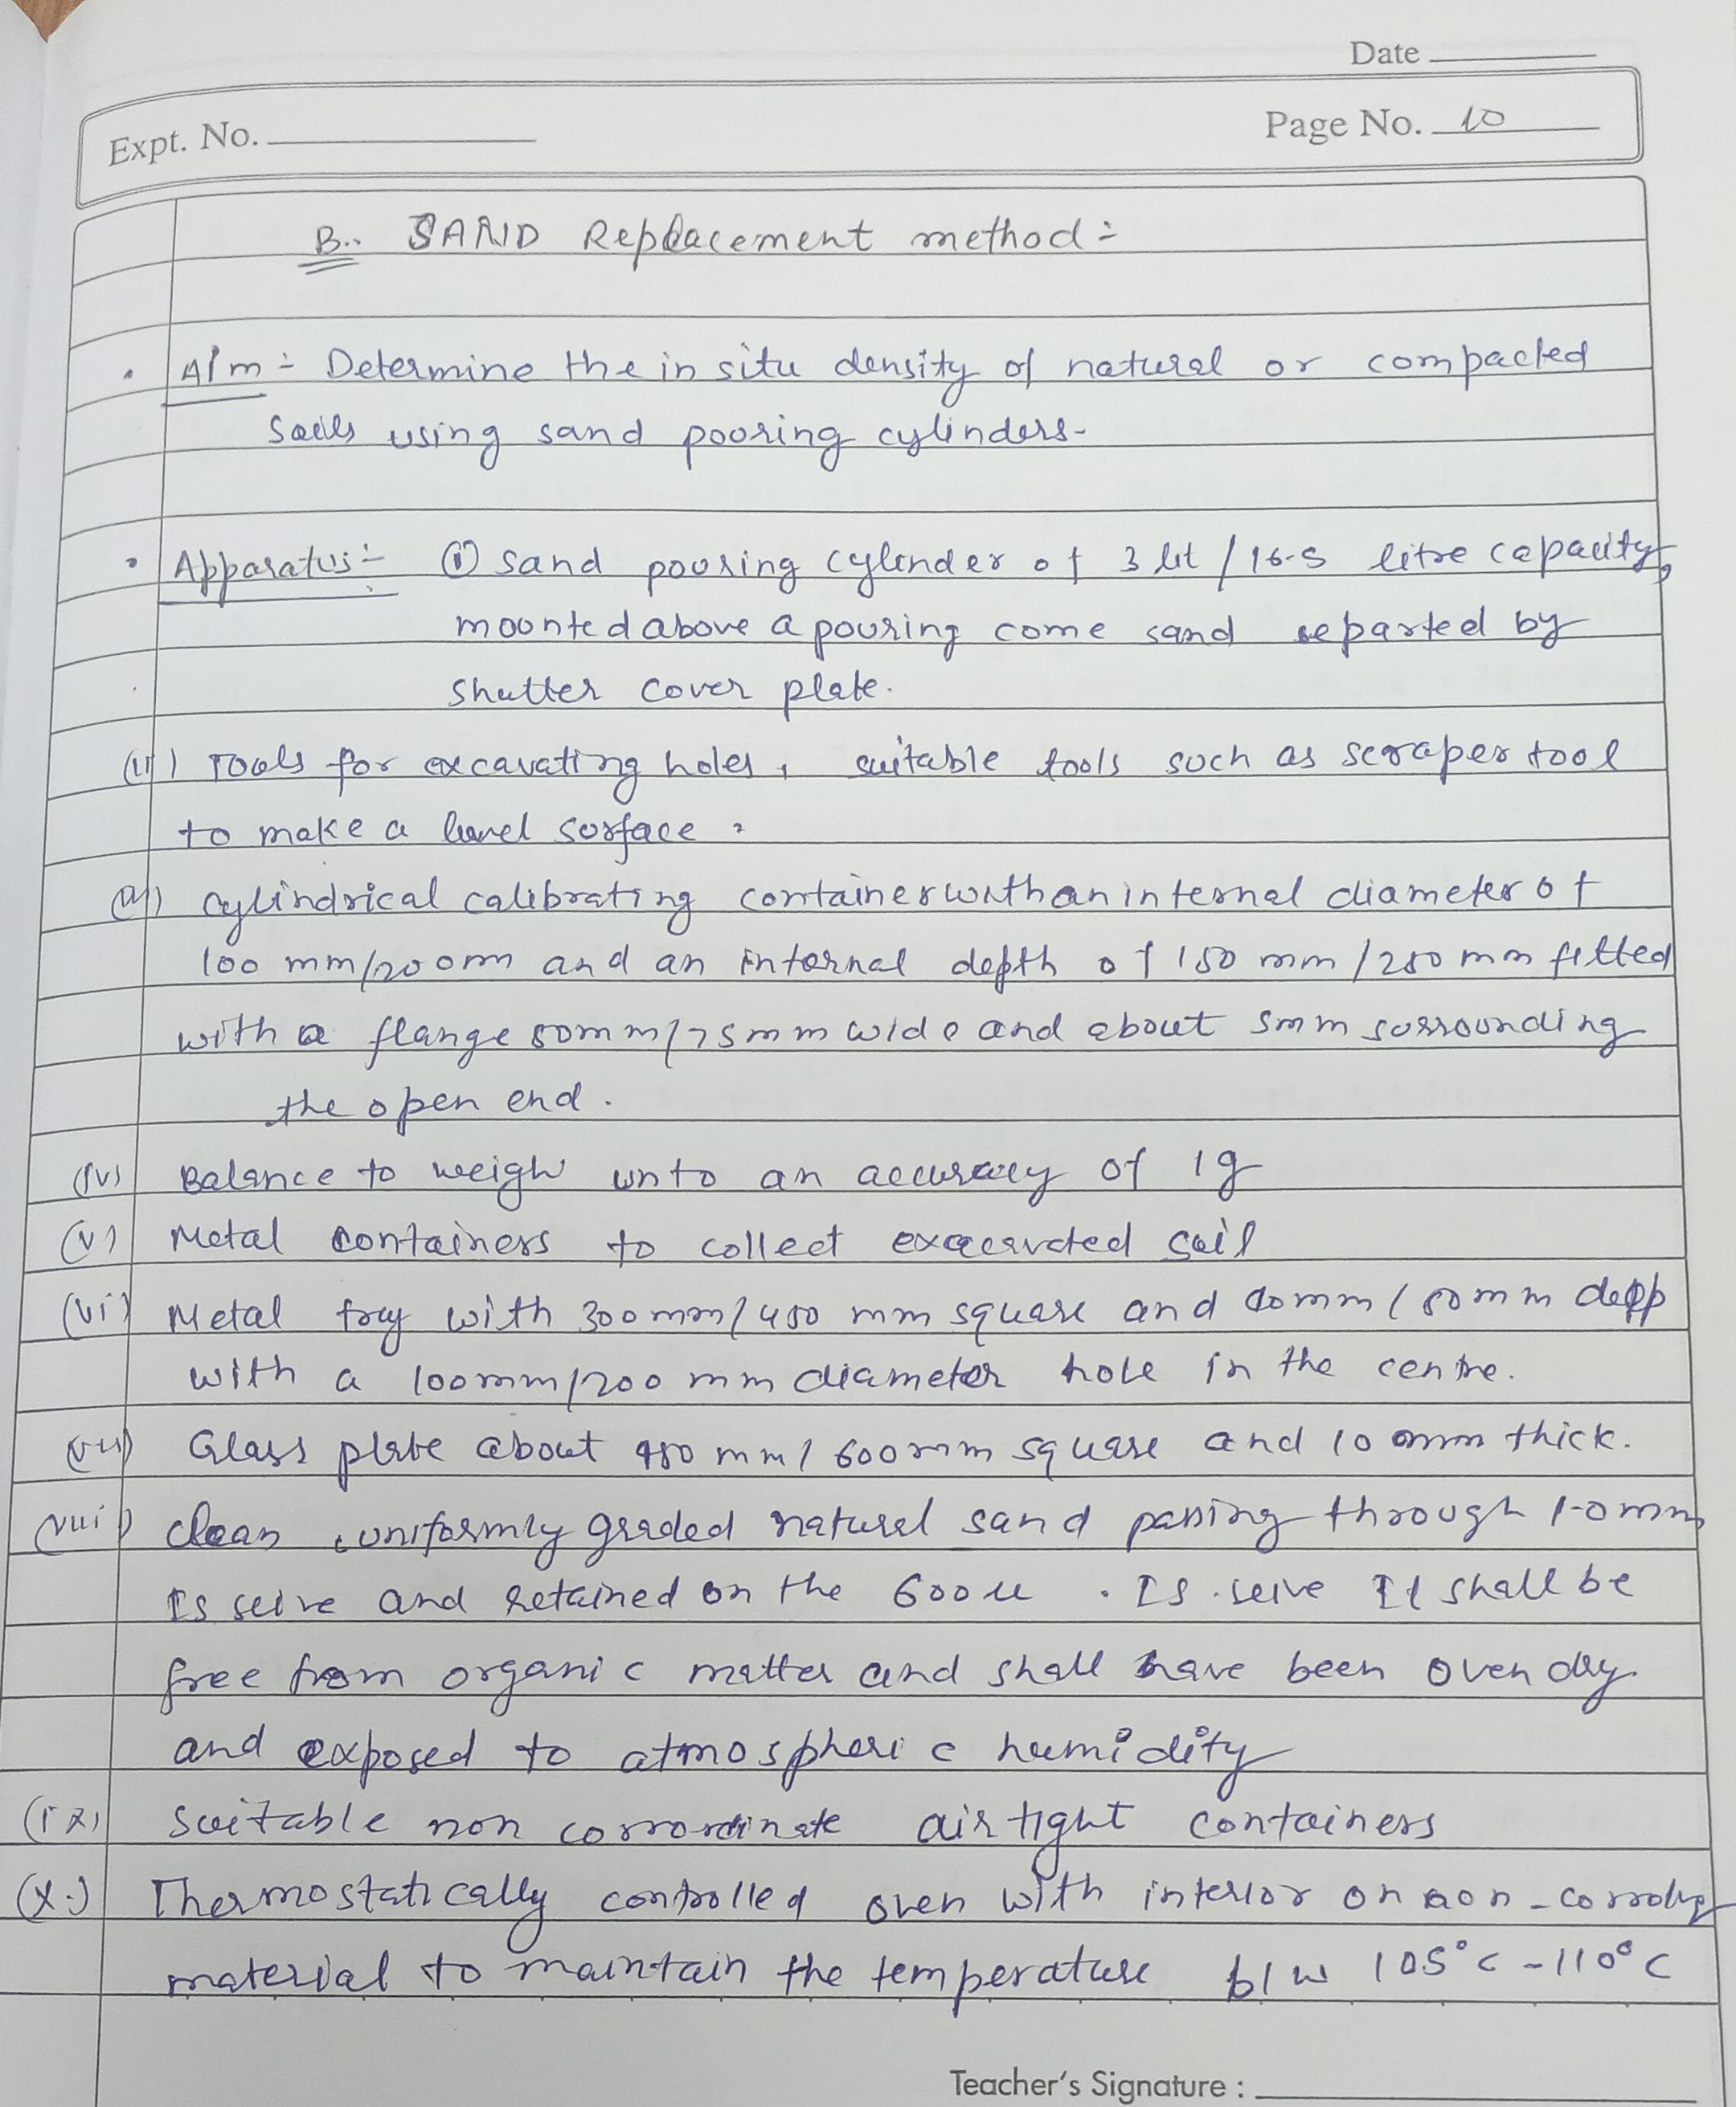 Date
Expt. No.
Page No. 10
B. SAND Replacement method :-
Aim :- Determine the in situ density of natural or compacted
soils using sand pooring cylinders.
Apparatus :- (i) sand pouring cylinder of 3 lit / 16.5 litre capacity,
moonted above a pouring come sand separted by
shutter cover plate.
(ii) Tools for excavating holes, suitable tools such as scraper tool
to make a level sorface.
(iii) cylindrical calibrating container with an internal diameter of
100 mm/200mm and an internal depth of 150 mm / 250 mm fitted
with a flange 50mm/75mm wide and about 5mm sorrounding
the open end.
(iv) Balance to weigh unto an accuracy of 1g
(v) Metal containers to collect soil
(vi) Metal tray with 300mm/450 mm square and 40mm / 50mm depp
with a 100mm/200 mm diameter hole in the centre.
(vii) Glass plate about 450 mm / 600mm square and 10 mm thick.
(viii) clean, uniformly graded natural sand passing through 1.0mm
IS seive and retained on the 600 u . IS . seive It shall be
free from organic matter and shall have been oven dry
and exposed to atmospheric humidity
(ix) suitable non air tight containers
(x.) Thermostatically controlled oven with interior on non-
material to maintain the temperature b/w 105°C - 110°C
Teacher's Signature :